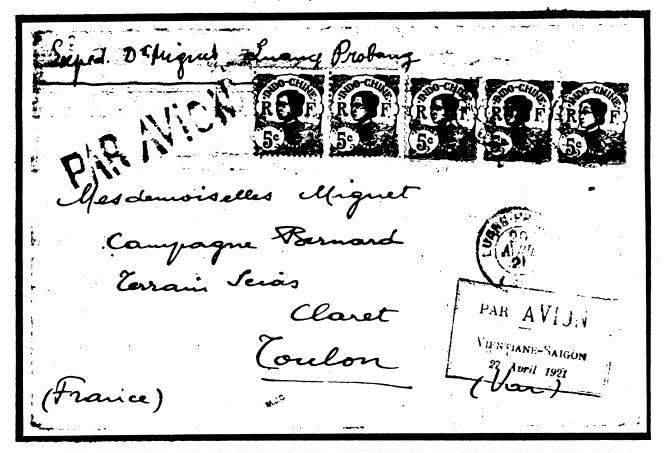 Exped. Dr Miguet Luang Probang
PAR AVION
INDO-CHINE R F 5c
INDO-CHINE R F 5c
INDO-CHINE R F 5c
INDO-CHINE R F 5c
INDO-CHINE R F 5c
Mesdemoiselles Miguet
Campagne Bernard
Terrain
Claret
Toulon
(France)
(Var)
LUANG-PR
AVRIL
21
PAR AVION
VIENTIANE-SAIGON
27 Avril 1921
MJC